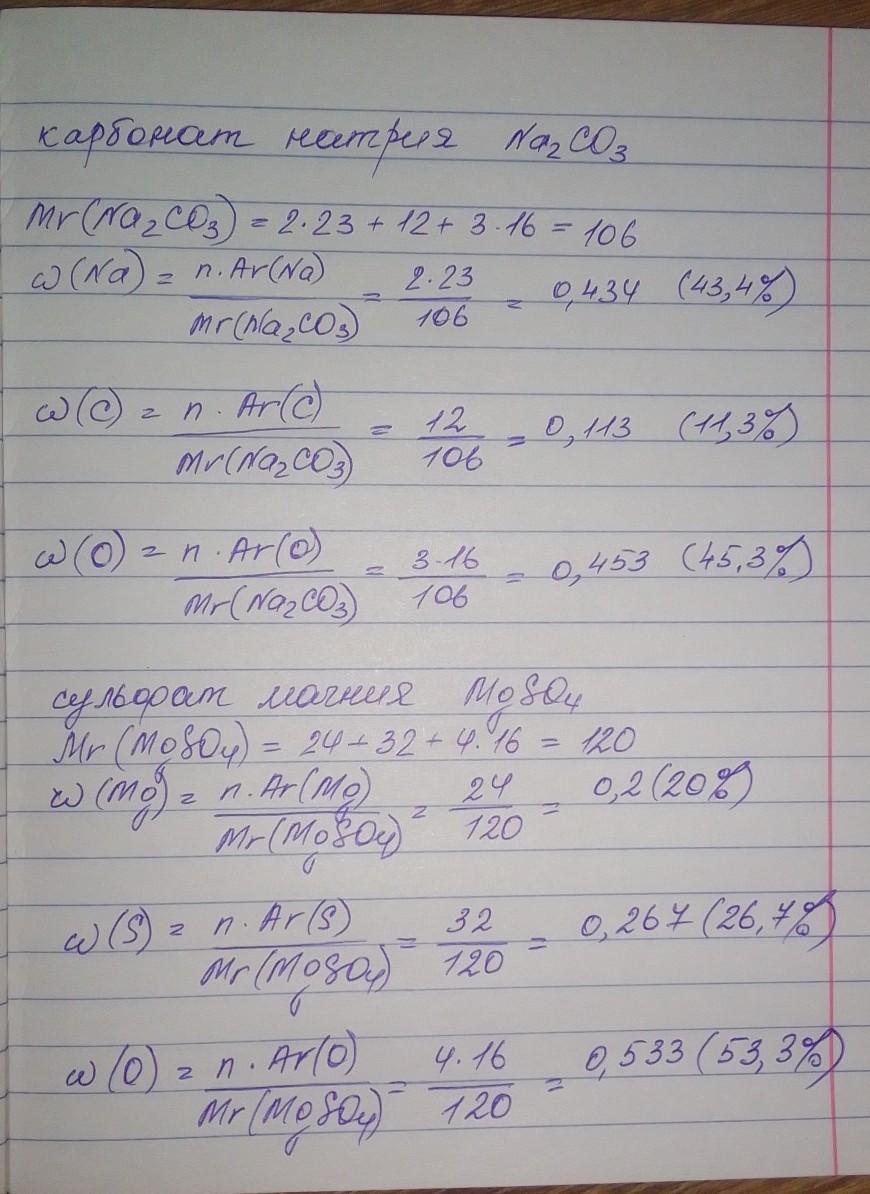 карбонат натрия Na₂CO₃
Mr(Na₂CO₃) = 2·23 + 12 + 3·16 = 106
ω(Na) = n·Ar(Na) / Mr(Na₂CO₃) = 2·23 / 106 = 0,434 (43,4%)
ω(C) = n·Ar(C) / Mr(Na₂CO₃) = 12 / 106 = 0,113 (11,3%)
ω(O) = n·Ar(O) / Mr(Na₂CO₃) = 3·16 / 106 = 0,453 (45,3%)
сульфат магния MgSO₄
Mr(MgSO₄) = 24 + 32 + 4·16 = 120
ω(Mg) = n·Ar(Mg) / Mr(MgSO₄) = 24 / 120 = 0,2 (20%)
ω(S) = n·Ar(S) / Mr(MgSO₄) = 32 / 120 = 0,267 (26,7%)
ω(O) = n·Ar(O) / Mr(MgSO₄) = 4·16 / 120 = 0,533 (53,3%)